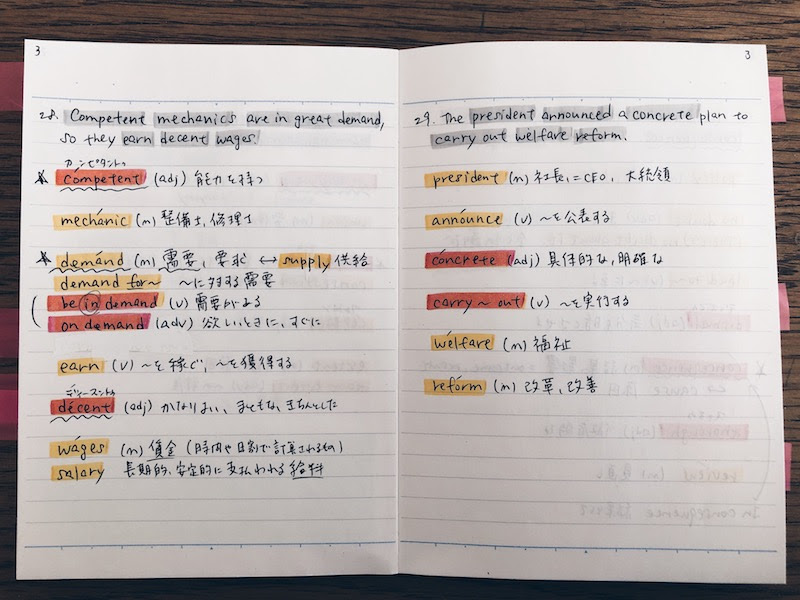 3
28. Competent mechanics are in great demand,
so they earn decent wages.
カンピタントゥ
★ competent (adj) 能力を持つ
mechanic (n) 整備士, 修理士
★ demand (n) 需要, 要求 ↔ supply 供給
demand for〜 〜に対する需要
be in demand (v) 需要がある
on demand (adv) 欲しいときに, すぐに
earn (v) 〜を稼ぐ, 〜を獲得する
ディースントゥ
decent (adj) かなりよい, まともな, きちんとした
wages (n) 賃金 (時間や日割で計算されるもの)
salary 長期的, 安定的に支払われる給料
3
29. The president announced a concrete plan to
carry out welfare reform.
president (n) 社長, = CEO, 大統領
announce (v) 〜を公表する
concrete (adj) 具体的な, 明確な
carry 〜 out (v) 〜を実行する
welfare (n) 福祉
reform (n) 改革, 改善